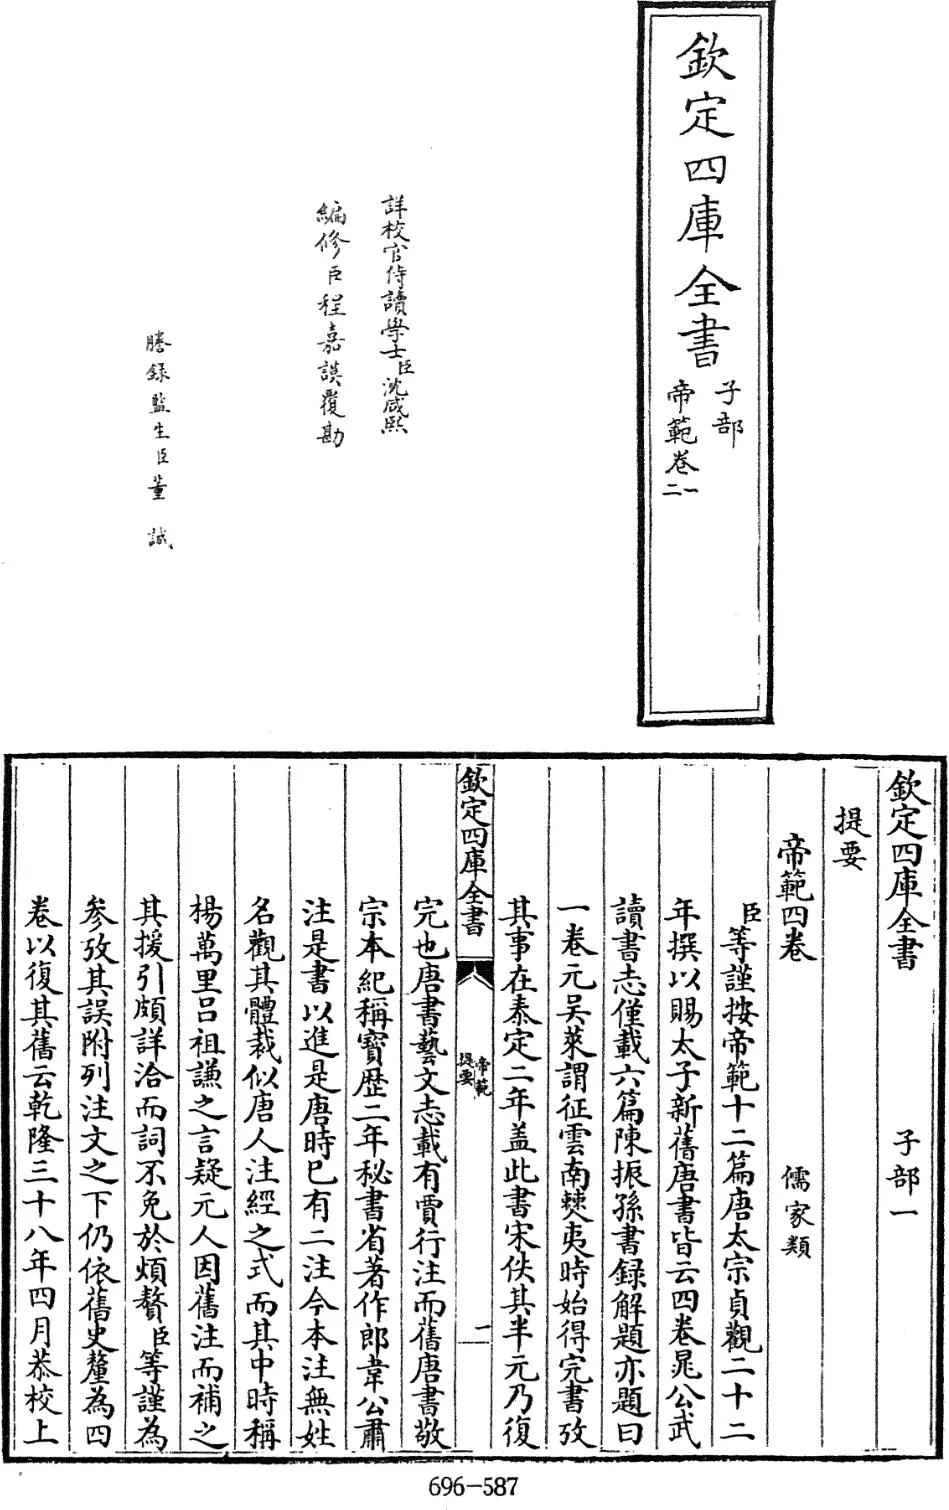 欽定四庫全書
子部
帝範卷一二
詳校官侍讀學士臣沈咸熙
編修臣程嘉謨覆勘
謄錄監生臣董誠
欽定四庫全書 子部一
提要
帝範四卷 儒家類
臣等謹按帝範十二篇唐太宗貞觀二十二
年撰以賜太子新舊唐書皆云四卷晁公武
讀書志僅載六篇陳振孫書録解題亦題曰
一卷元吴萊謂征雲南僰夷時始得完書攷
其事在泰定二年盖此書宋佚其半元乃復
欽定四庫全書
帝範
提要
二
完也唐書藝文志載有賈行注而舊唐書敬
宗本紀稱寳歴二年秘書省著作郎韋公肅
注是書以進是唐時已有二注今本注無姓
名觀其體裁似唐人注經之式而其中時稱
楊萬里吕祖謙之言疑元人因舊注而補之
其援引頗詳洽而詞不免於煩贅臣等謹為
參攷其誤附列注文之下仍依舊史釐為四
卷以復其舊云乾隆三十八年四月恭校上
696-587